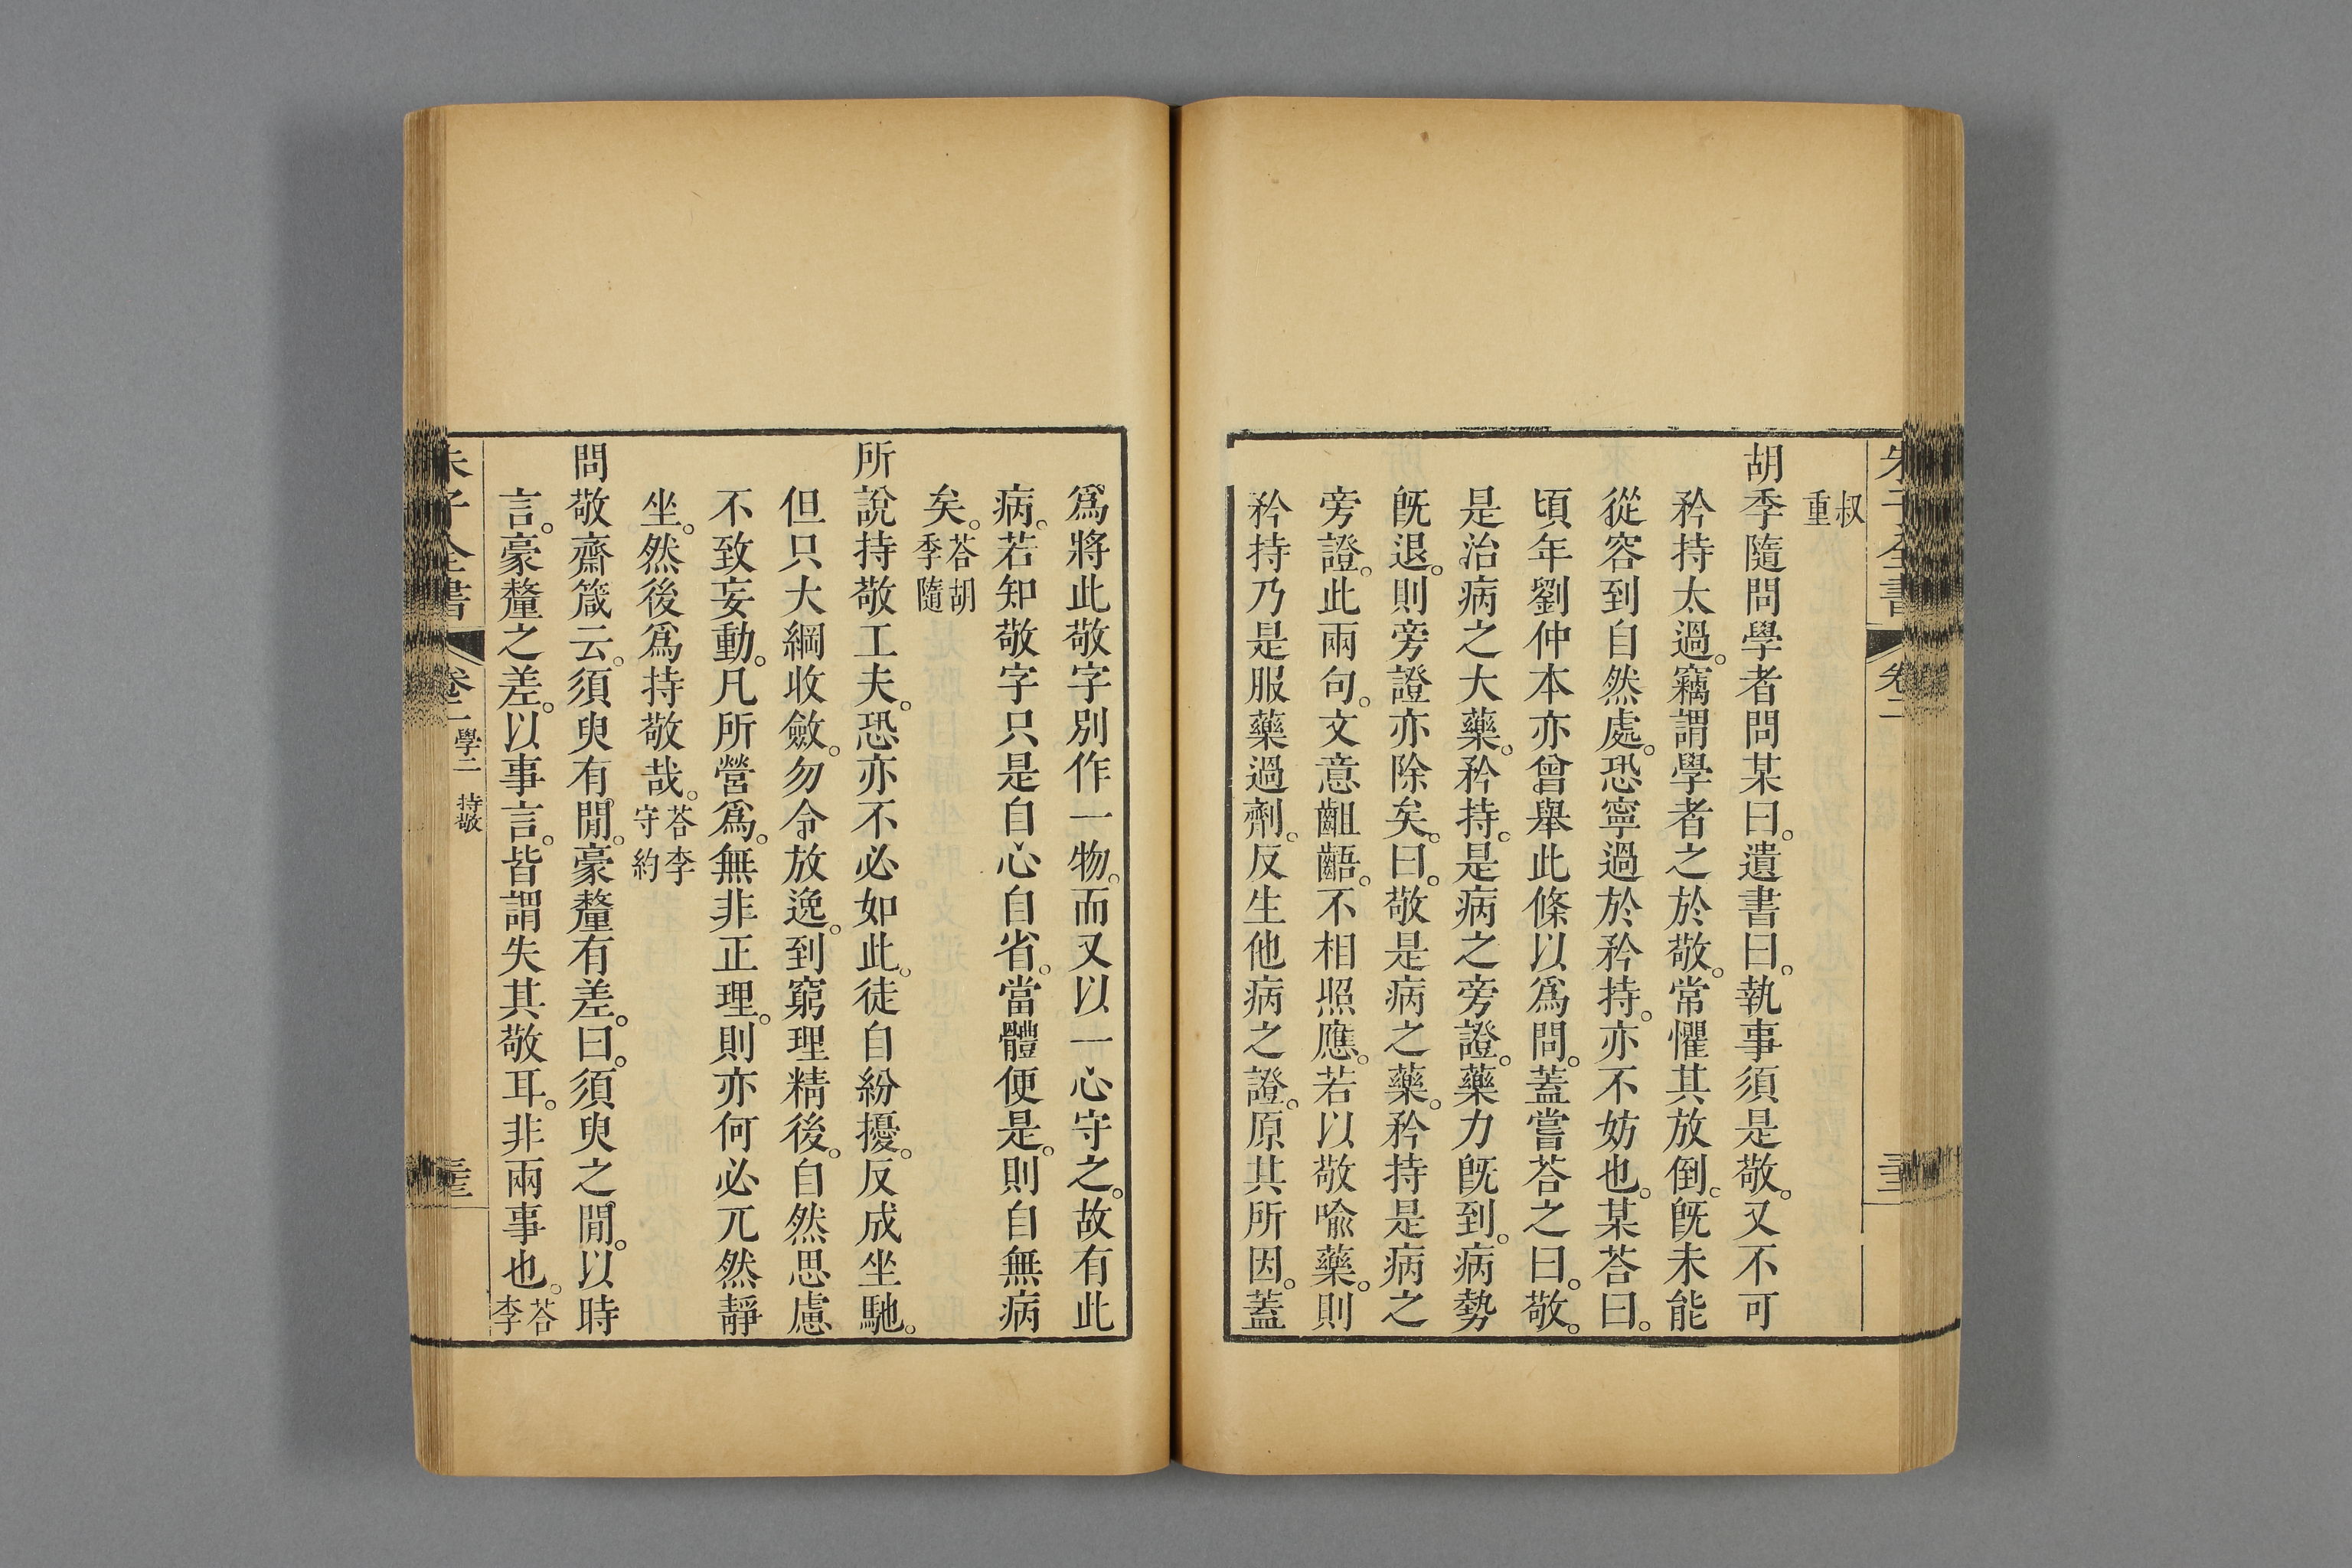 朱子全書 卷二
叔重
胡季隨問學者問某曰。遺書曰。執事須是敬。又不可
矜持太過。竊謂學者之於敬。常懼其放倒。旣未能
從容到自然處。恐寧過於矜持。亦不妨也。某荅曰。
頃年劉仲本亦曾舉此條以爲問。蓋嘗荅之曰。敬。
是治病之大藥。矜持。是病之旁證。藥力旣到。病勢
旣退。則旁證亦除矣。曰。敬是病之藥。矜持是病之
旁證。此兩句。文意齟齬。不相照應。若以敬喩藥。則
矜持乃是服藥過劑。反生他病之證。原其所因。蓋
爲將此敬字別作一物。而又以一心守之。故有此
病。若知敬字只是自心自省。當體便是。則自無病
矣。荅胡季隨
所說持敬工夫。恐亦不必如此。徒自紛擾。反成坐馳。
但只大綱收斂。勿令放逸。到窮理精後。自然思慮
不致妄動。凡所營爲。無非正理。則亦何必兀然靜
坐。然後爲持敬哉。荅李守約
問敬齋箴云。須臾有閒。豪釐有差。曰。須臾之閒。以時
言。豪釐之差。以事言。皆謂失其敬耳。非兩事也。荅李
朱子全書 卷二 學二 持敬